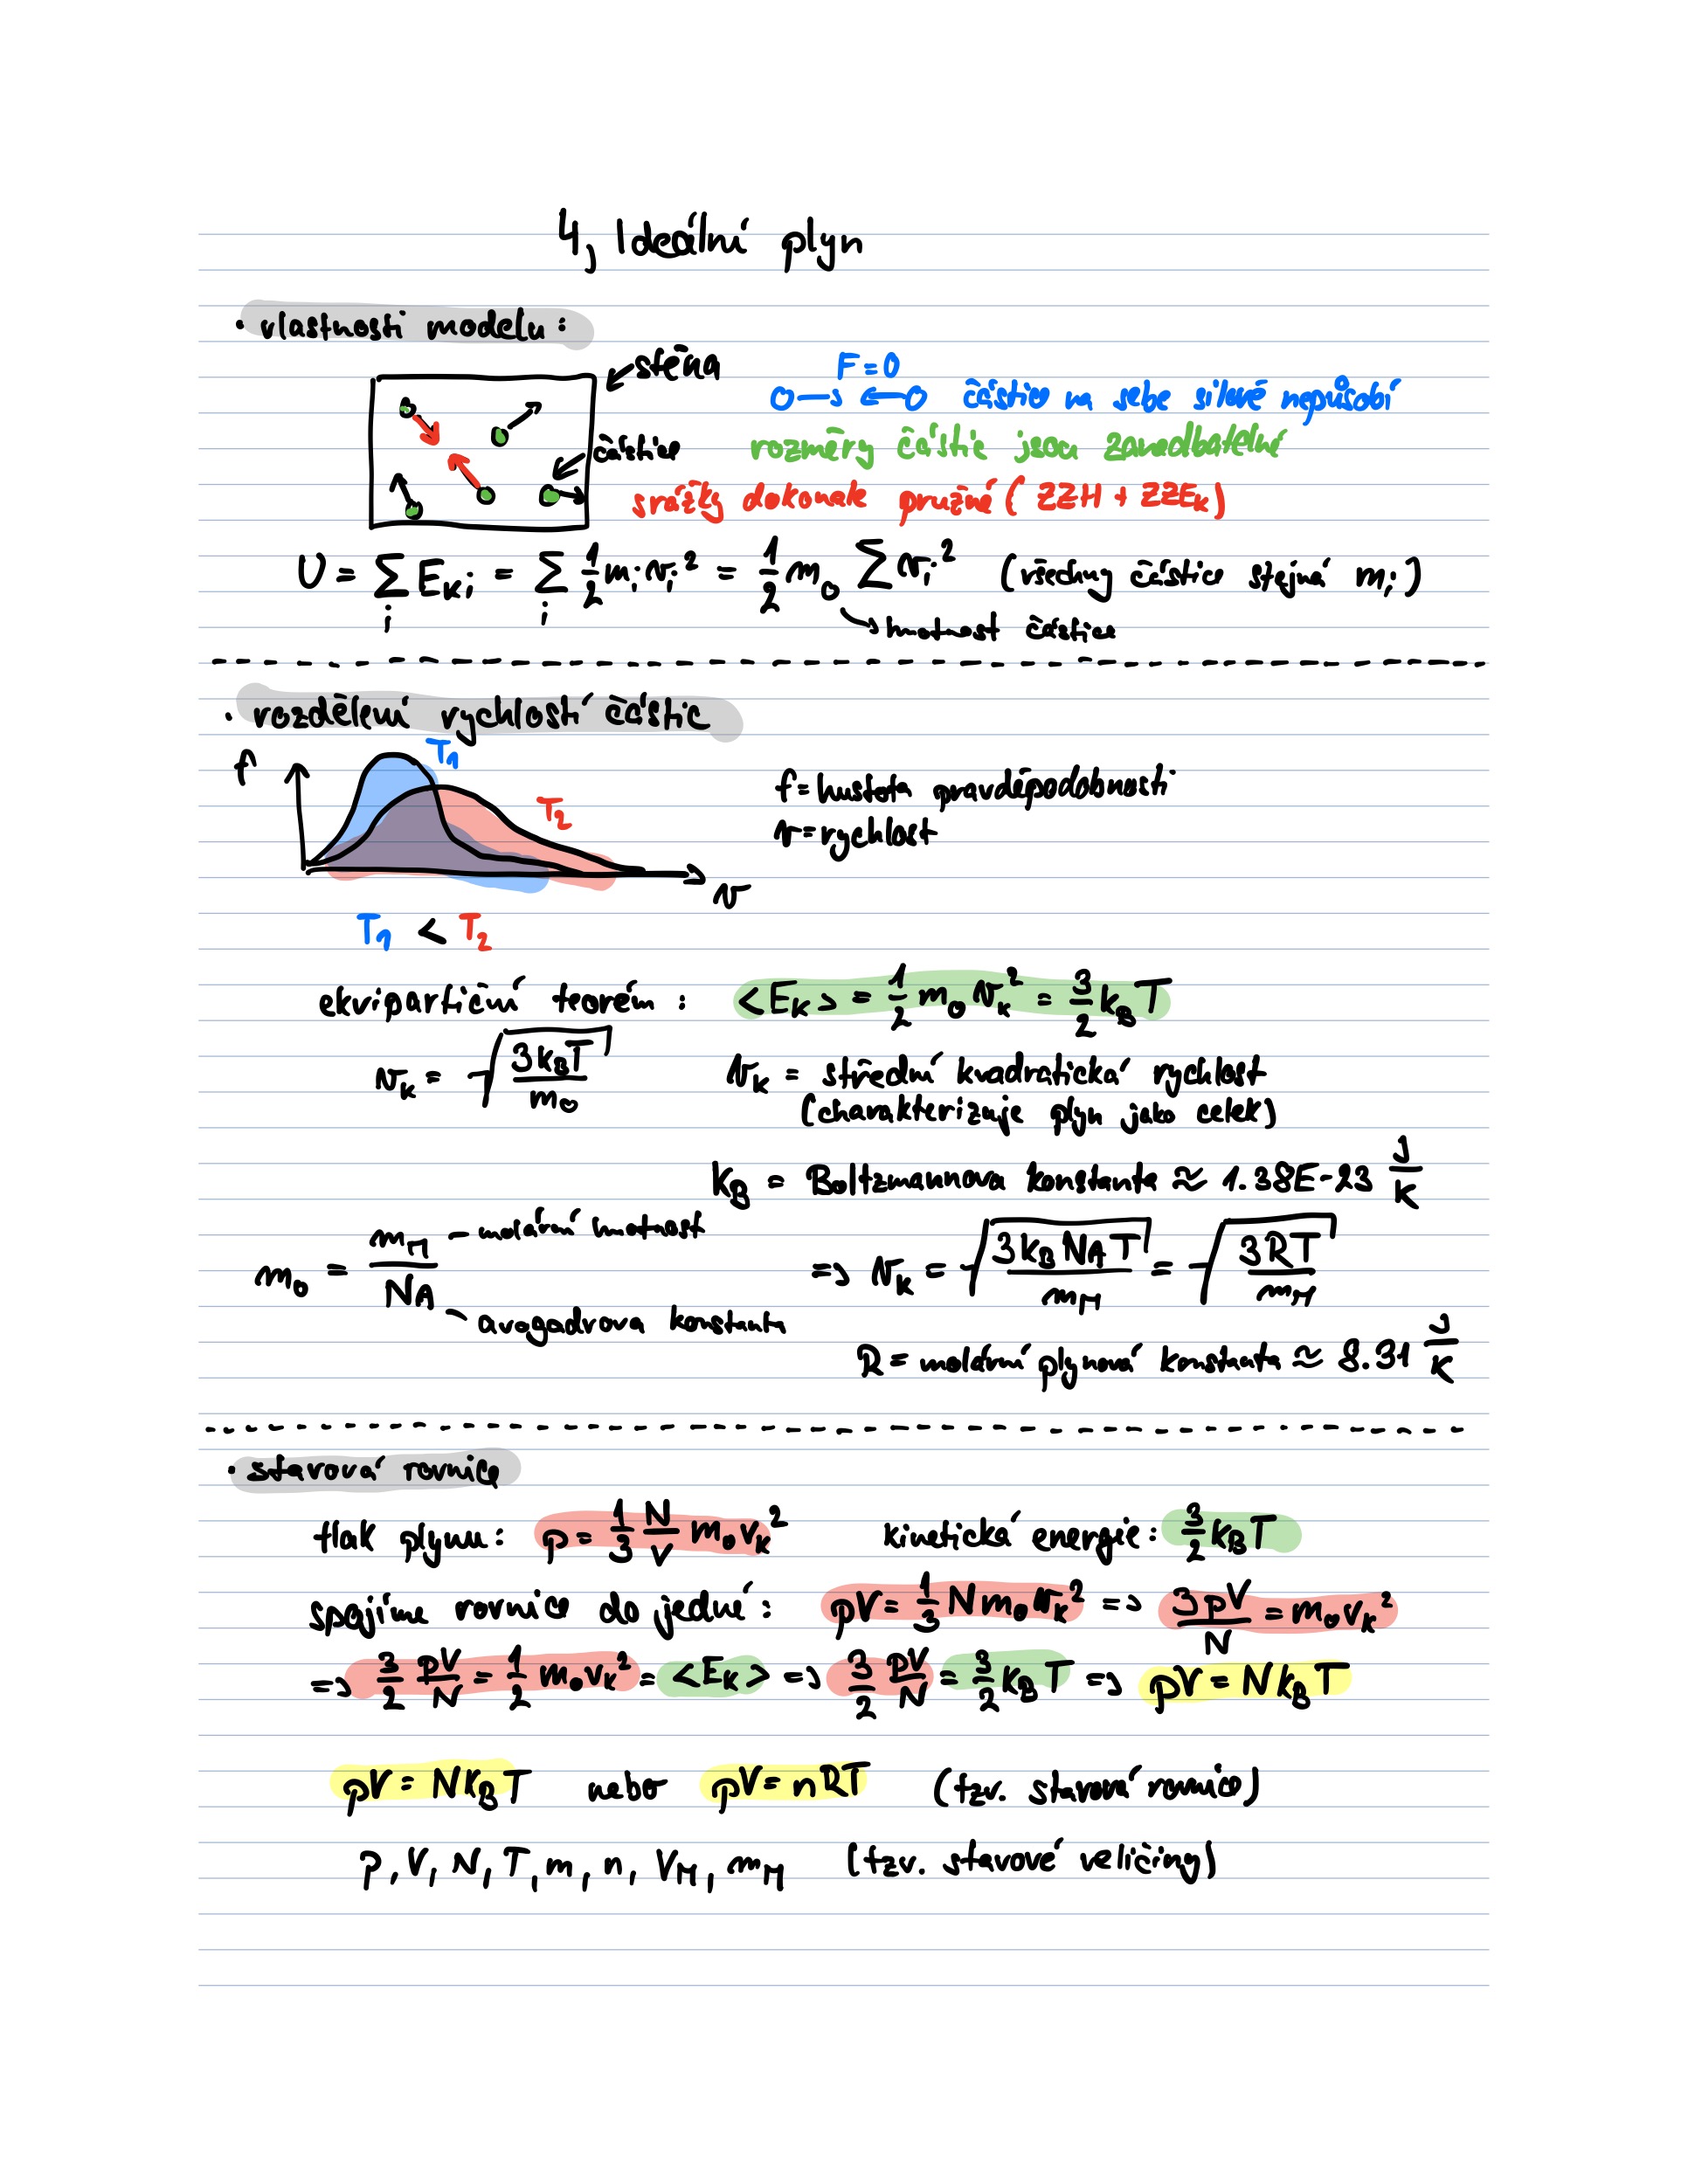 4, Ideální plyn
• vlastnosti modelu:
stěna
F=0
částice na sebe silově nepůsobí
částice
rozměry částic jsou zanedbatelné
srážky dokonale pružné (ZZH + ZZE_K)
U = ∑_i E_Ki = ∑_i 1/2 m_i v_i² = 1/2 m_0 ∑ v_i² (všechny částice stejná m_i)
hmotnost částice
• rozdělení rychlostí částic
f
T_1
T_2
f = hustota pravděpodobnosti
v = rychlost
v
T_1 < T_2
ekvipartiční teorém: <E_K> = 1/2 m_0 v_K² = 3/2 k_B T
v_K = √(3k_BT/m_0)
v_K = střední kvadratická rychlost
(charakterizuje plyn jako celek)
k_B = Boltzmannova konstanta ≈ 1.38E-23 J/K
m_0 = m_M/N_A
– molární hmotnost
– avogadrova konstanta
=> v_K = √(3k_B N_A T/m_M) = √(3RT/m_M)
R = molární plynová konstanta ≈ 8.31 J/K
• stavová rovnice
tlak plynu: p = 1/3 N/V m_0 v_K² kinetická energie: 3/2 k_B T
spojíme rovnice do jedné: pV = 1/3 N m_0 v_K² => 3pV/N = m_0 v_K²
=> 3/2 pV/N = 1/2 m_0 v_K² = <E_K> => 3/2 pV/N = 3/2 k_B T => pV = N k_B T
pV = N k_B T nebo pV = nRT (tzv. stavová rovnice)
p, V, N, T, m, n, V_M, m_M (tzv. stavové veličiny)